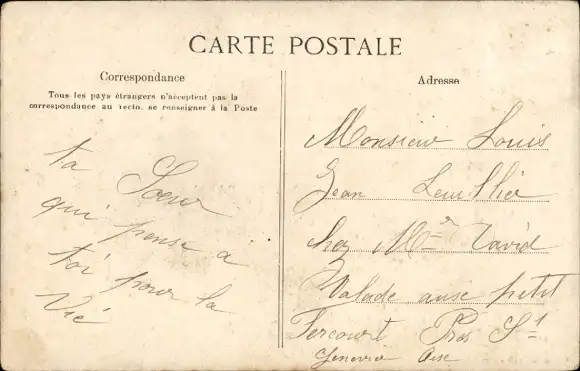 CARTE POSTALE
Correspondance
Tous les pays étrangers n'acceptent pas la
correspondance au recto, se renseigner à la Poste
ta Soeur
qui pense a
toi pour la
Vie
Adresse
Monsieur Louis
Jean
chez Mr David
Malade ause petit
Fercourt Pres St
Genevie Oise